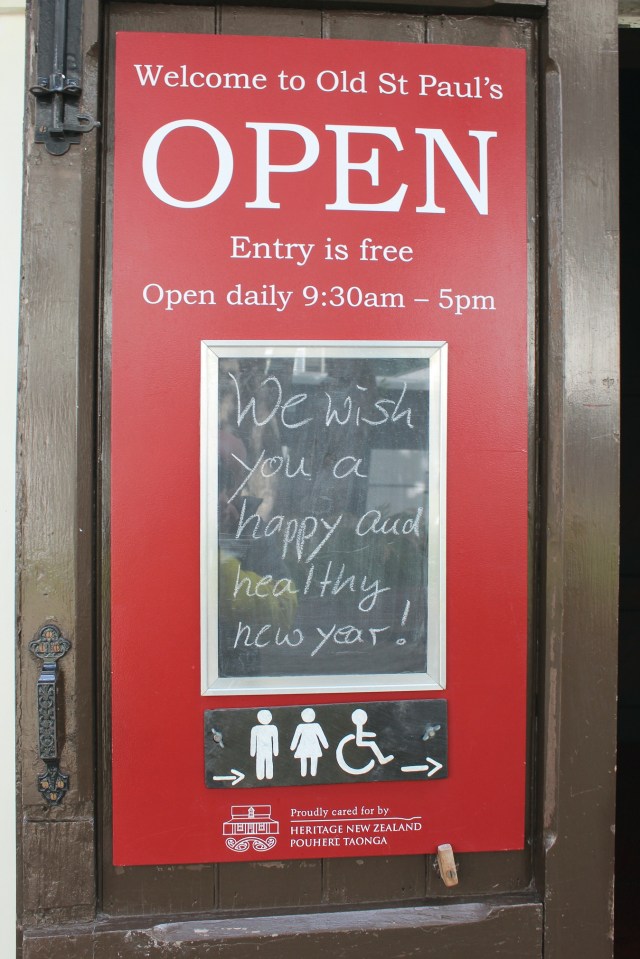 Welcome to Old St Paul's
OPEN
Entry is free
Open daily 9:30am – 5pm
We wish
you a
happy and
healthy
new year!
Proudly cared for by
HERITAGE NEW ZEALAND
POUHERE TAONGA